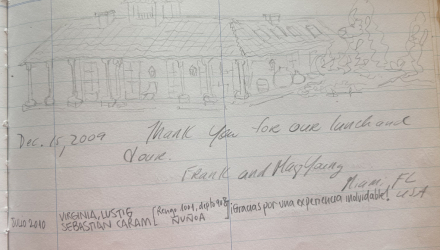 Dec. 15, 2009 Thank You for our lunch and
Frank and Meg Young
Miami, FL
USA
JULIO 2010 VIRGINIA, LUSTIG
SEBASTIAN CARAM ÑUÑOA ¡Gracias por una experiencia inolvidable!